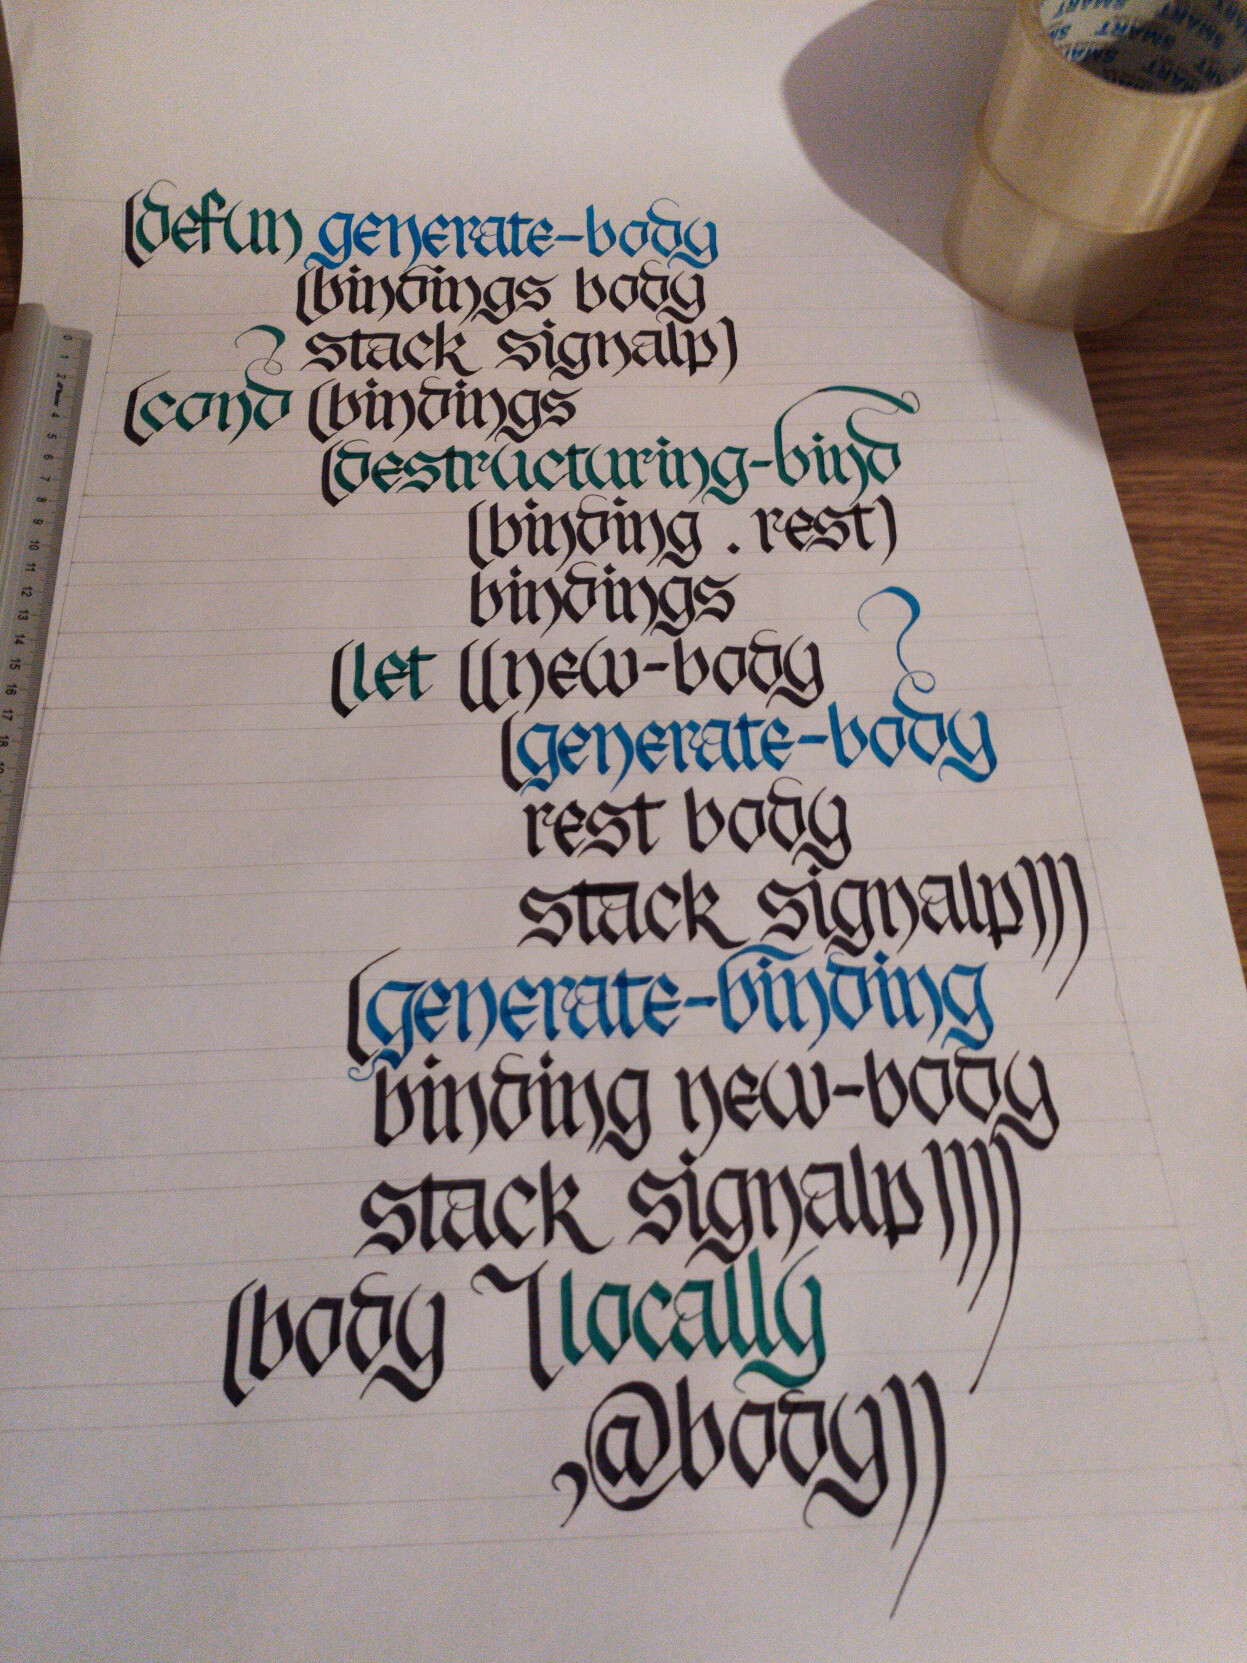 (defun generate-body
(bindings body
stack signalp)
(cond (bindings
(destructuring-bind
(binding . rest)
bindings
(let ((new-body
(generate-body
rest body
stack signalp)))
(generate-binding
binding new-body
stack signalp))))
(body `(locally
,@body))
SMART SMART SMART SMART
0 1 2 4 5 6 7 8 9 10 11 12 13 14 15 16 17 18